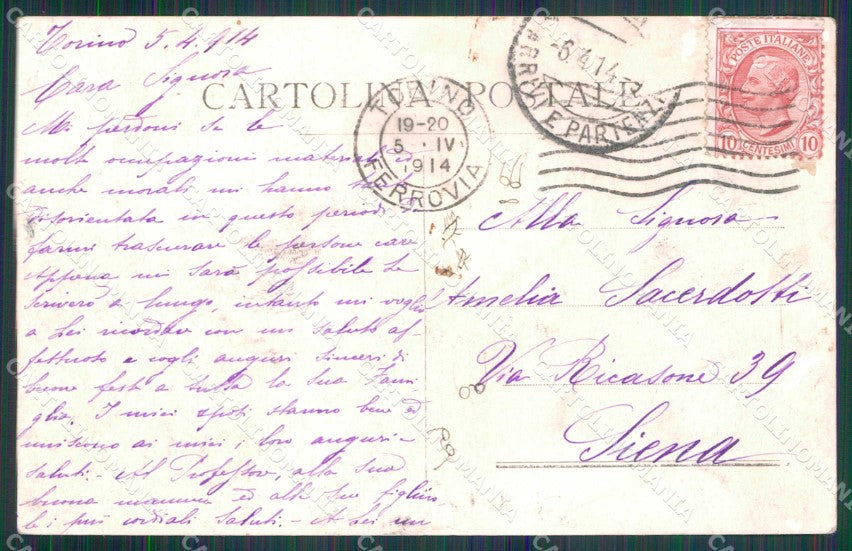 Torino 5.4.914
Cara Signora
CARTOLINA POSTALE
Mi perdoni se le
molte occupazioni materiali e
anche morali mi hanno
disorientata in questo periodo
farmi trascurare le persone care
Appena mi sarà possibile Le
scriverò a lungo, intanto mi voglio
a Lei ricordar con un saluto af-
fettuoso e cogli auguri sinceri di
buone feste a tutta la Sua Fami
glia. I miei sposi stanno bene ed
uniscono ai miei i loro auguri-
saluti. - Al Professor, alla Sua
buona mamma ed alle Sue figliuo
le i più cordiali saluti. - A Lei un
TORINO
19-20
5 . IV.
1914
FERROVIA
ARRIVI E PARTENZE
-6.4.14-7
POSTE ITALIANE
10 CENTESIMI 10
Alla Signora
Amelia Sacerdotti
Via Ricasone 39
Siena
CARTOLINOMANIA